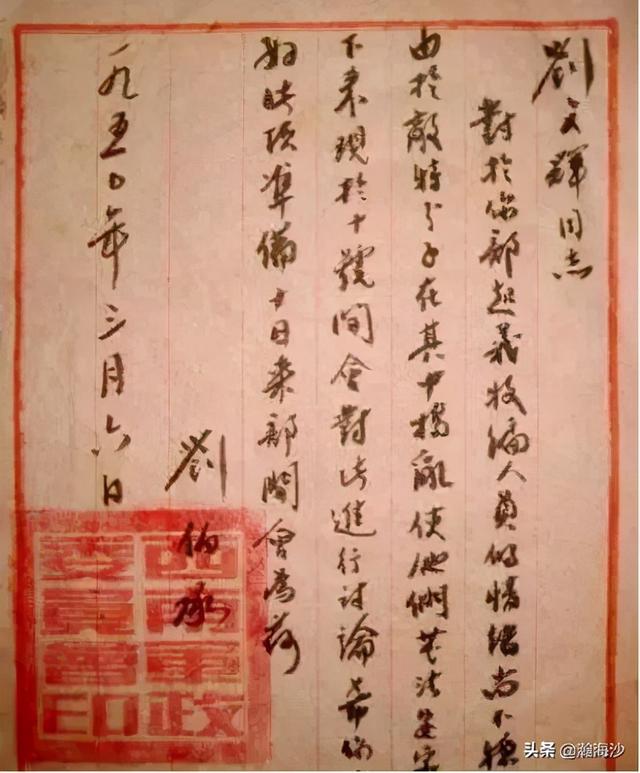 劉文輝同志
對於你部起義收編人員的情緒尚不穩
由於敵特分子在其中搗亂使他們無法安
下來現於十號開會對此進行討論希你
好此項準備十日來部開會為荷
劉伯承
一九五〇年三月六日
西南軍政委員會印
头条 @瀚海沙